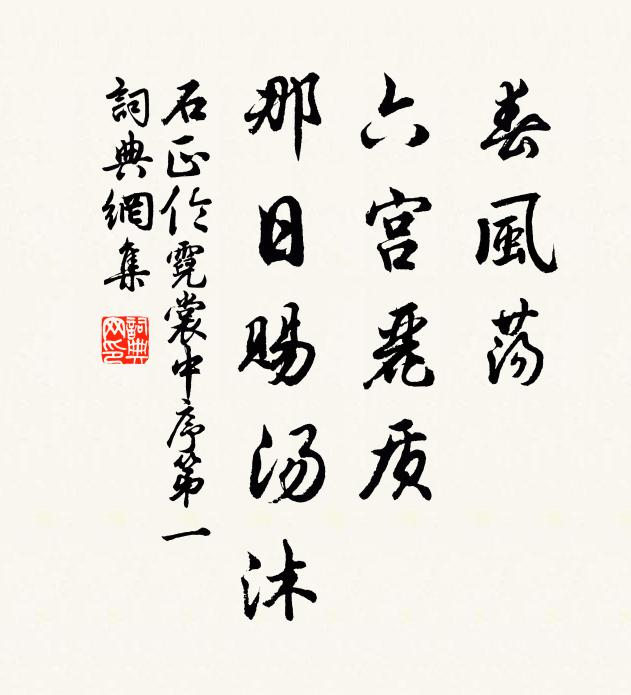 春風蕩
六宫麗质
那日賜湯沐
石正伦霓裳中序第一
詞典網集
詞典網印